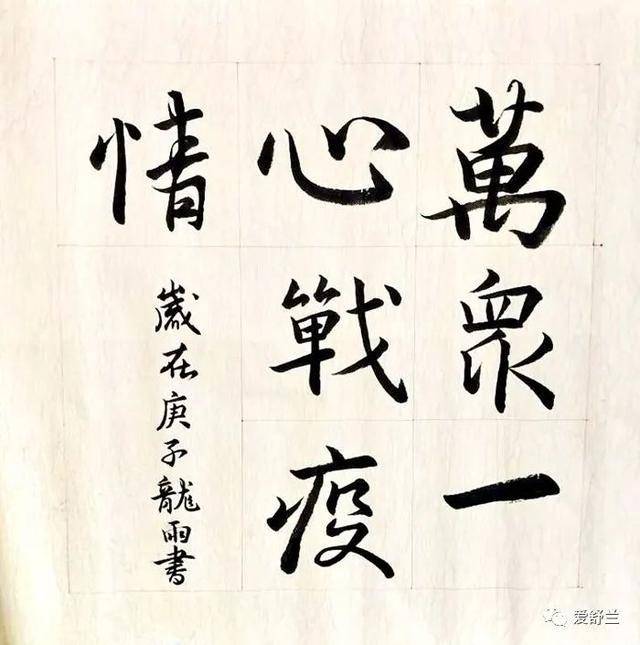 萬衆一
心戰疫
情
歲在庚子龍雨書
爱舒兰